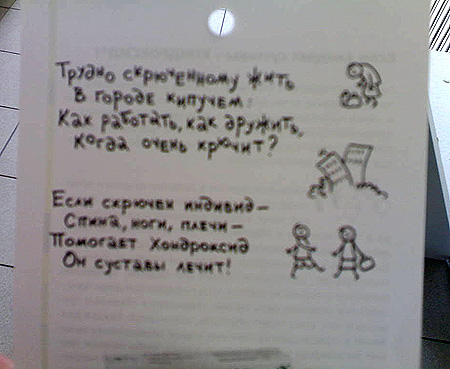 Трудно скрюченному жить
В городе кипучем:
Как работать, как дружить,
Когда очень крючит?
Если скрючен индивид—
Спина, ноги, плечи—
Помогает Хондроксид
Он суставы лечит!